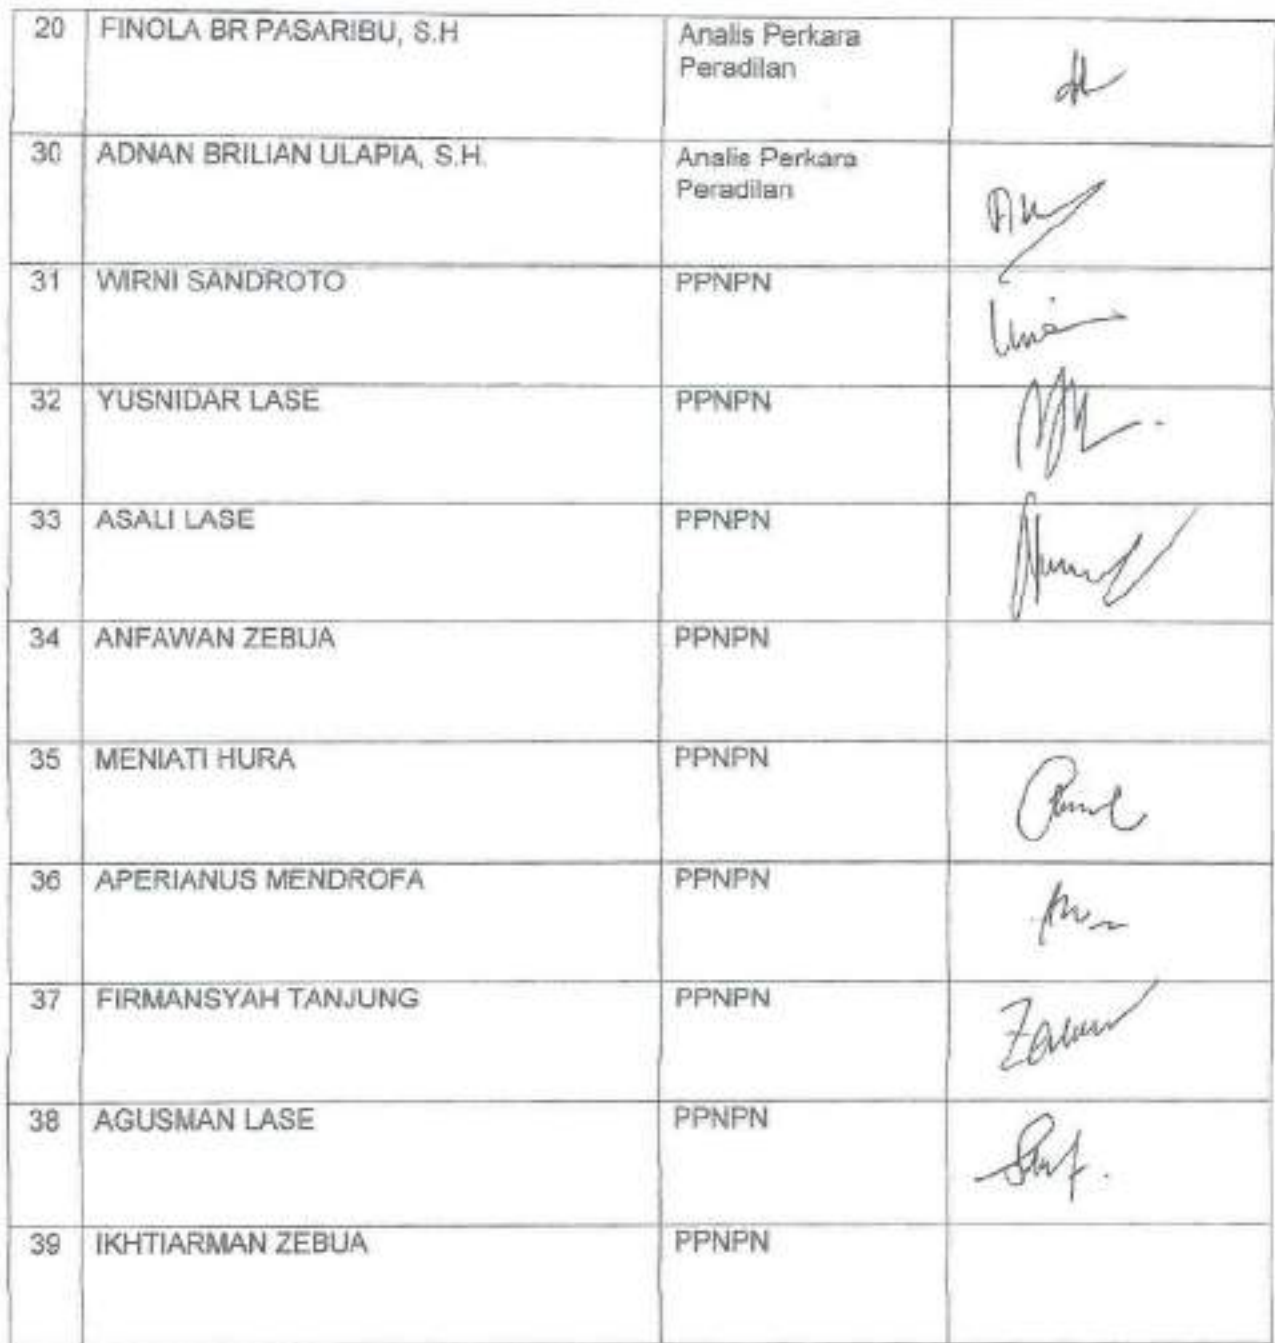 20 FINOLA BR PASARIBU, S.H Analis Perkara
Peradilan
30 ADNAN BRILIAN ULAPIA, S.H. Analis Perkara
Peradilan
31 WIRNI SANDROTO PPNPN
32 YUSNIDAR LASE PPNPN
33 ASALI LASE PPNPN
34 ANFAWAN ZEBUA PPNPN
35 MENIATI HURA PPNPN
36 APERIANUS MENDROFA PPNPN
37 FIRMANSYAH TANJUNG PPNPN
38 AGUSMAN LASE PPNPN
39 IKHTIARMAN ZEBUA PPNPN